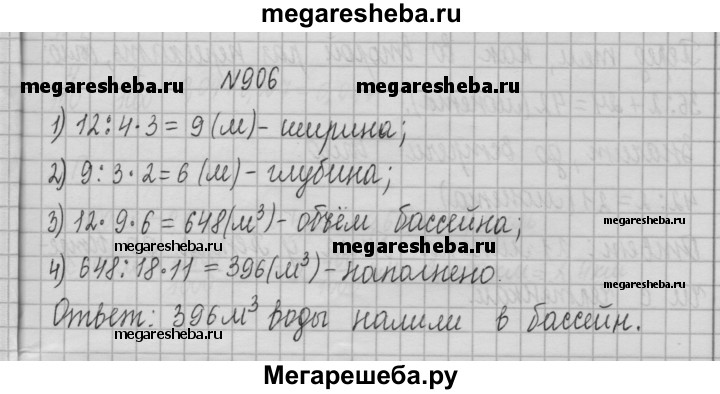 megaresheba.ru
N906
megaresheba.ru
megaresheba.ru
1) 12:4·3 = 9 (м) - ширина;
2) 9:3·2=6 (м) - глубина;
3) 12·9·6 = 648(м³) - объём бассейна;
megaresheba.ru
megaresheba.ru
megaresheba.ru
4) 648:18·11 = 396(м³) - наполнено.
Ответ: 396м³ воды налили в бассейн.
megaresheba.ru
megaresheba.ru
Мегарешеба.ру